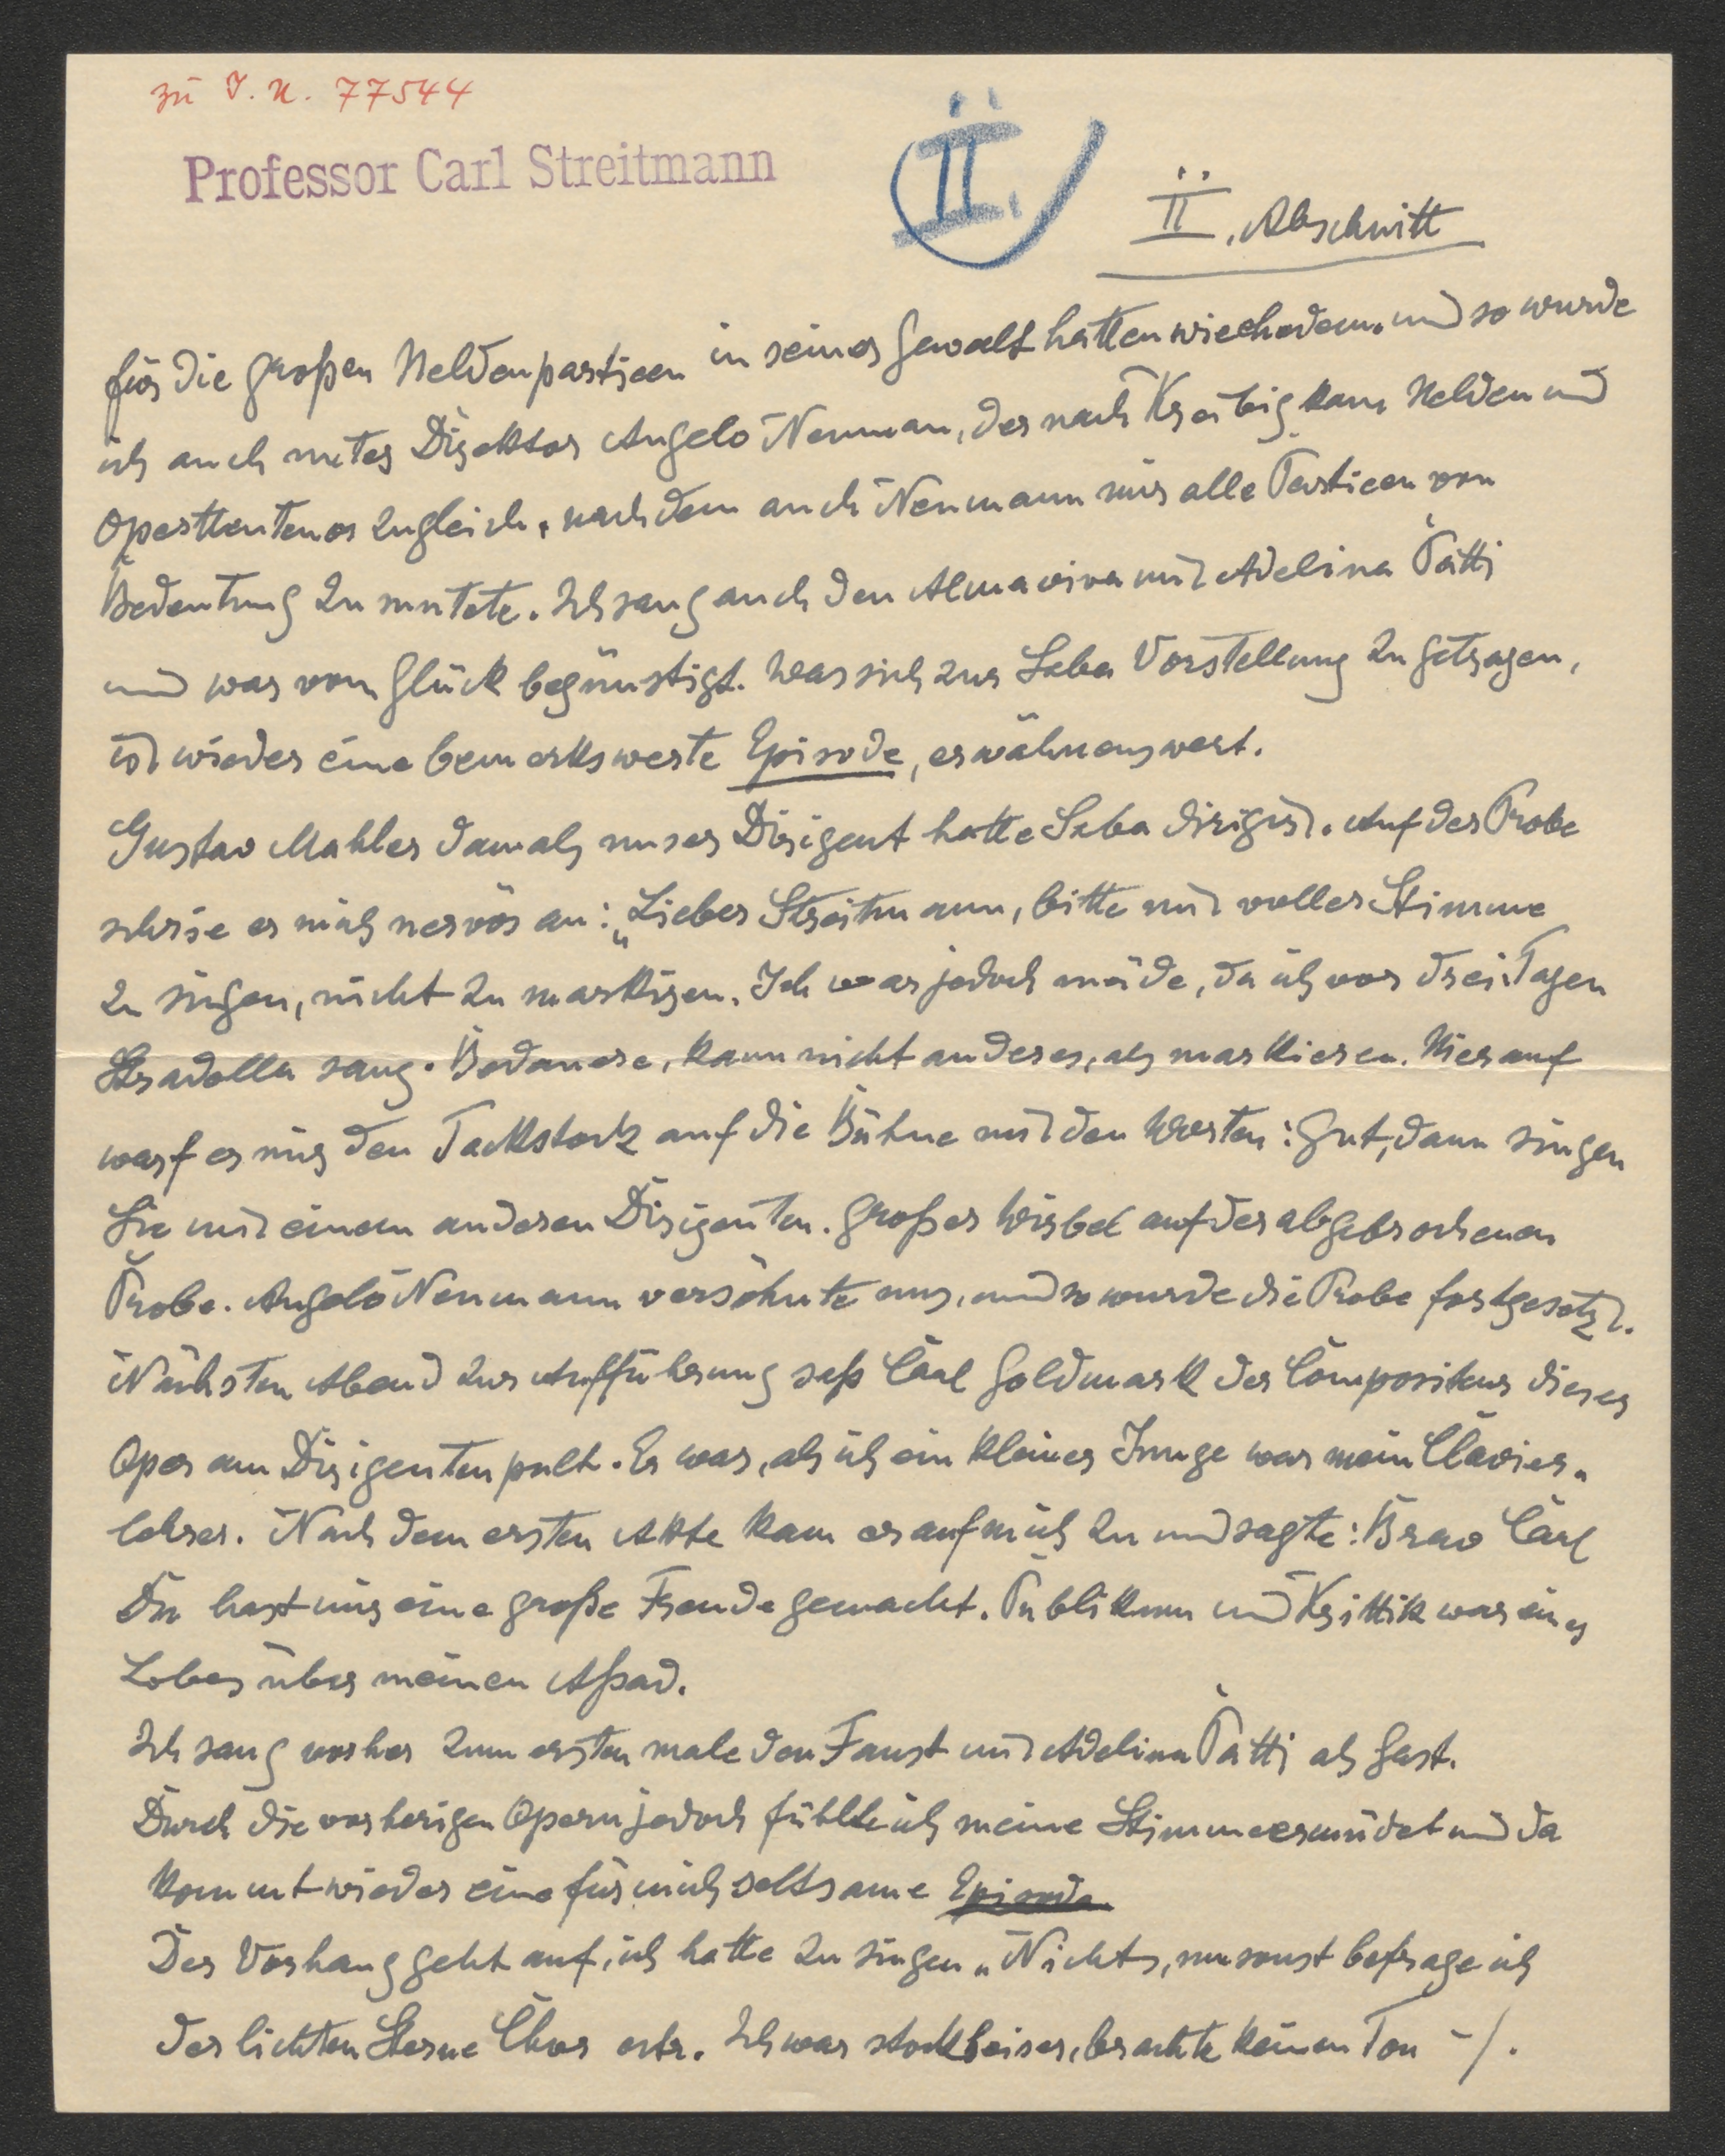 zu I. N. 77544
Professor Carl Streitmann
II.
II. Abschnitt
für die großen Heldenpartieen in seiner Gewalt hatten wiechedem. und so wurde
ich auch unter Direktor Angelo Neuman, der nach Kreibig kam Helden und
Operettentenor zugleich, nachdem auch Neumann mir alle Partieen von
Bedeutung zu mutete. Ich sang auch den Almaviva mit Adelina Patti
und war vom Glück begünstigt. Was sich zur Saba Vorstellung zu getragen,
ist wieder eine bemerkswerte Episode, erwähnenswert.
Gustav Mahler damals unser Dirigent hatte Saba dirigirt. Auf der Probe
schrie er mich nervös an: „Lieber Streitmann, bitte mit voller Stimme
zu singen, nicht zu markiren. Ich war jedoch müde, da ich vor drei Tagen
Stradella sang. Bedauere, kann nicht anderes, als markieren. Hierauf
warf er mir den Tacktstock auf die Bühne mit den Worten: Gut, dann singen
Sie mit einem anderen Dirigenten. Großer Wirbel auf der abgebrochenen
Probe. Angelo Neumann versöhnte uns, und so wurde die Probe fortgesetzt.
Nächsten Abend zur Aufführung saß Carl Goldmark der Compositeur dieser
Oper am Dirigentenpult. Er war, als ich ein kleiner Junge war mein Clavier-
lehrer. Nach dem ersten Akte kam er auf mich zu und sagte: Bravo Carl
Du hast mir eine große Freude gemacht. Publikum und Krittik war eines
Lobes über meinen Aßad.
Ich sang vorher zum ersten male den Faust mit Adelina Patti als Gast.
Durch die vorherigen Opern jedoch fühlte ich meine Stimme ermüdet und da
kommt wieder eine für mich seltsame Episode
Der Vorhang geht auf, ich hatte zu singen „Nichts, umsonst befrage ich
der lichten Sterne Chor ectr. Ich war stockheiser, brachte keinen Ton -/.